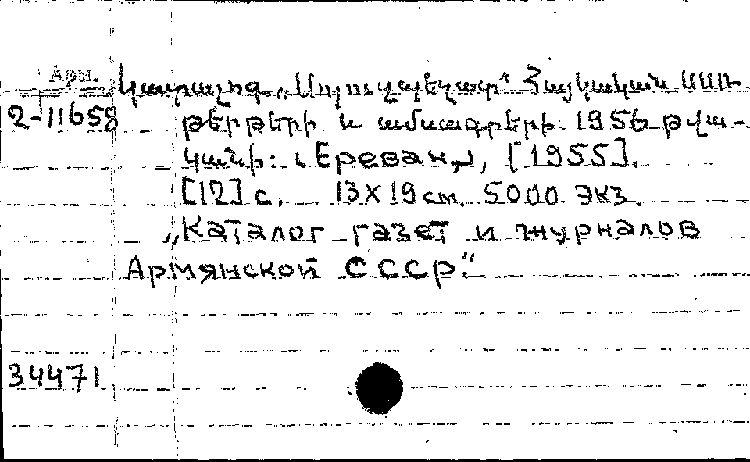 Арм. Կատալոգ „Սոյուզպեչատ“ Հայկական ՍՍՌ
2-11658 թերթերի և ամսագրերի 1956 թվա-
կանի: [Ереван], [1955].
[12] с. 13X19 см. 5000 экз.
„Каталог газет и журналов
Армянской СССР“
34471